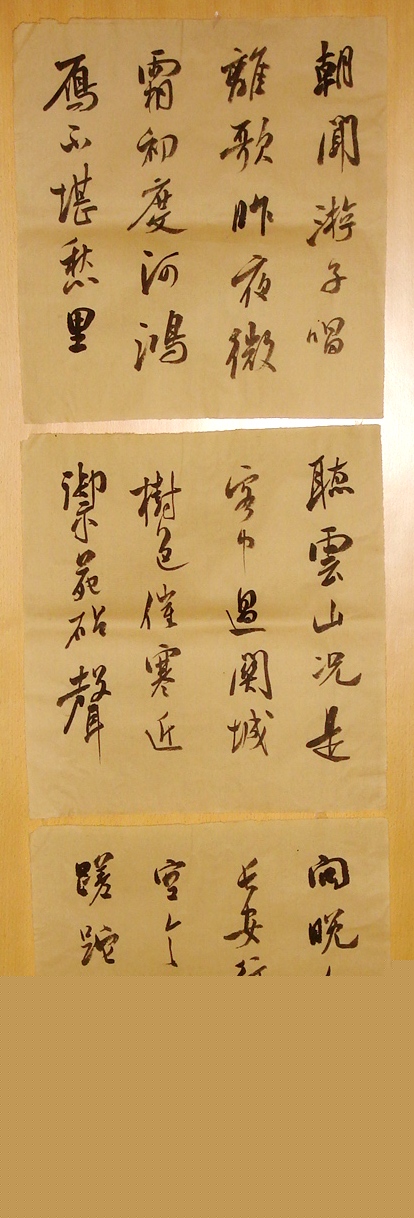 朝聞游子唱
離歌昨夜微
霜初度河鴻
鴈不堪愁里
聽雲山况是
客中過關城
樹色催寒近
禦苑砧聲
向晚
長安
空令
蹉跎